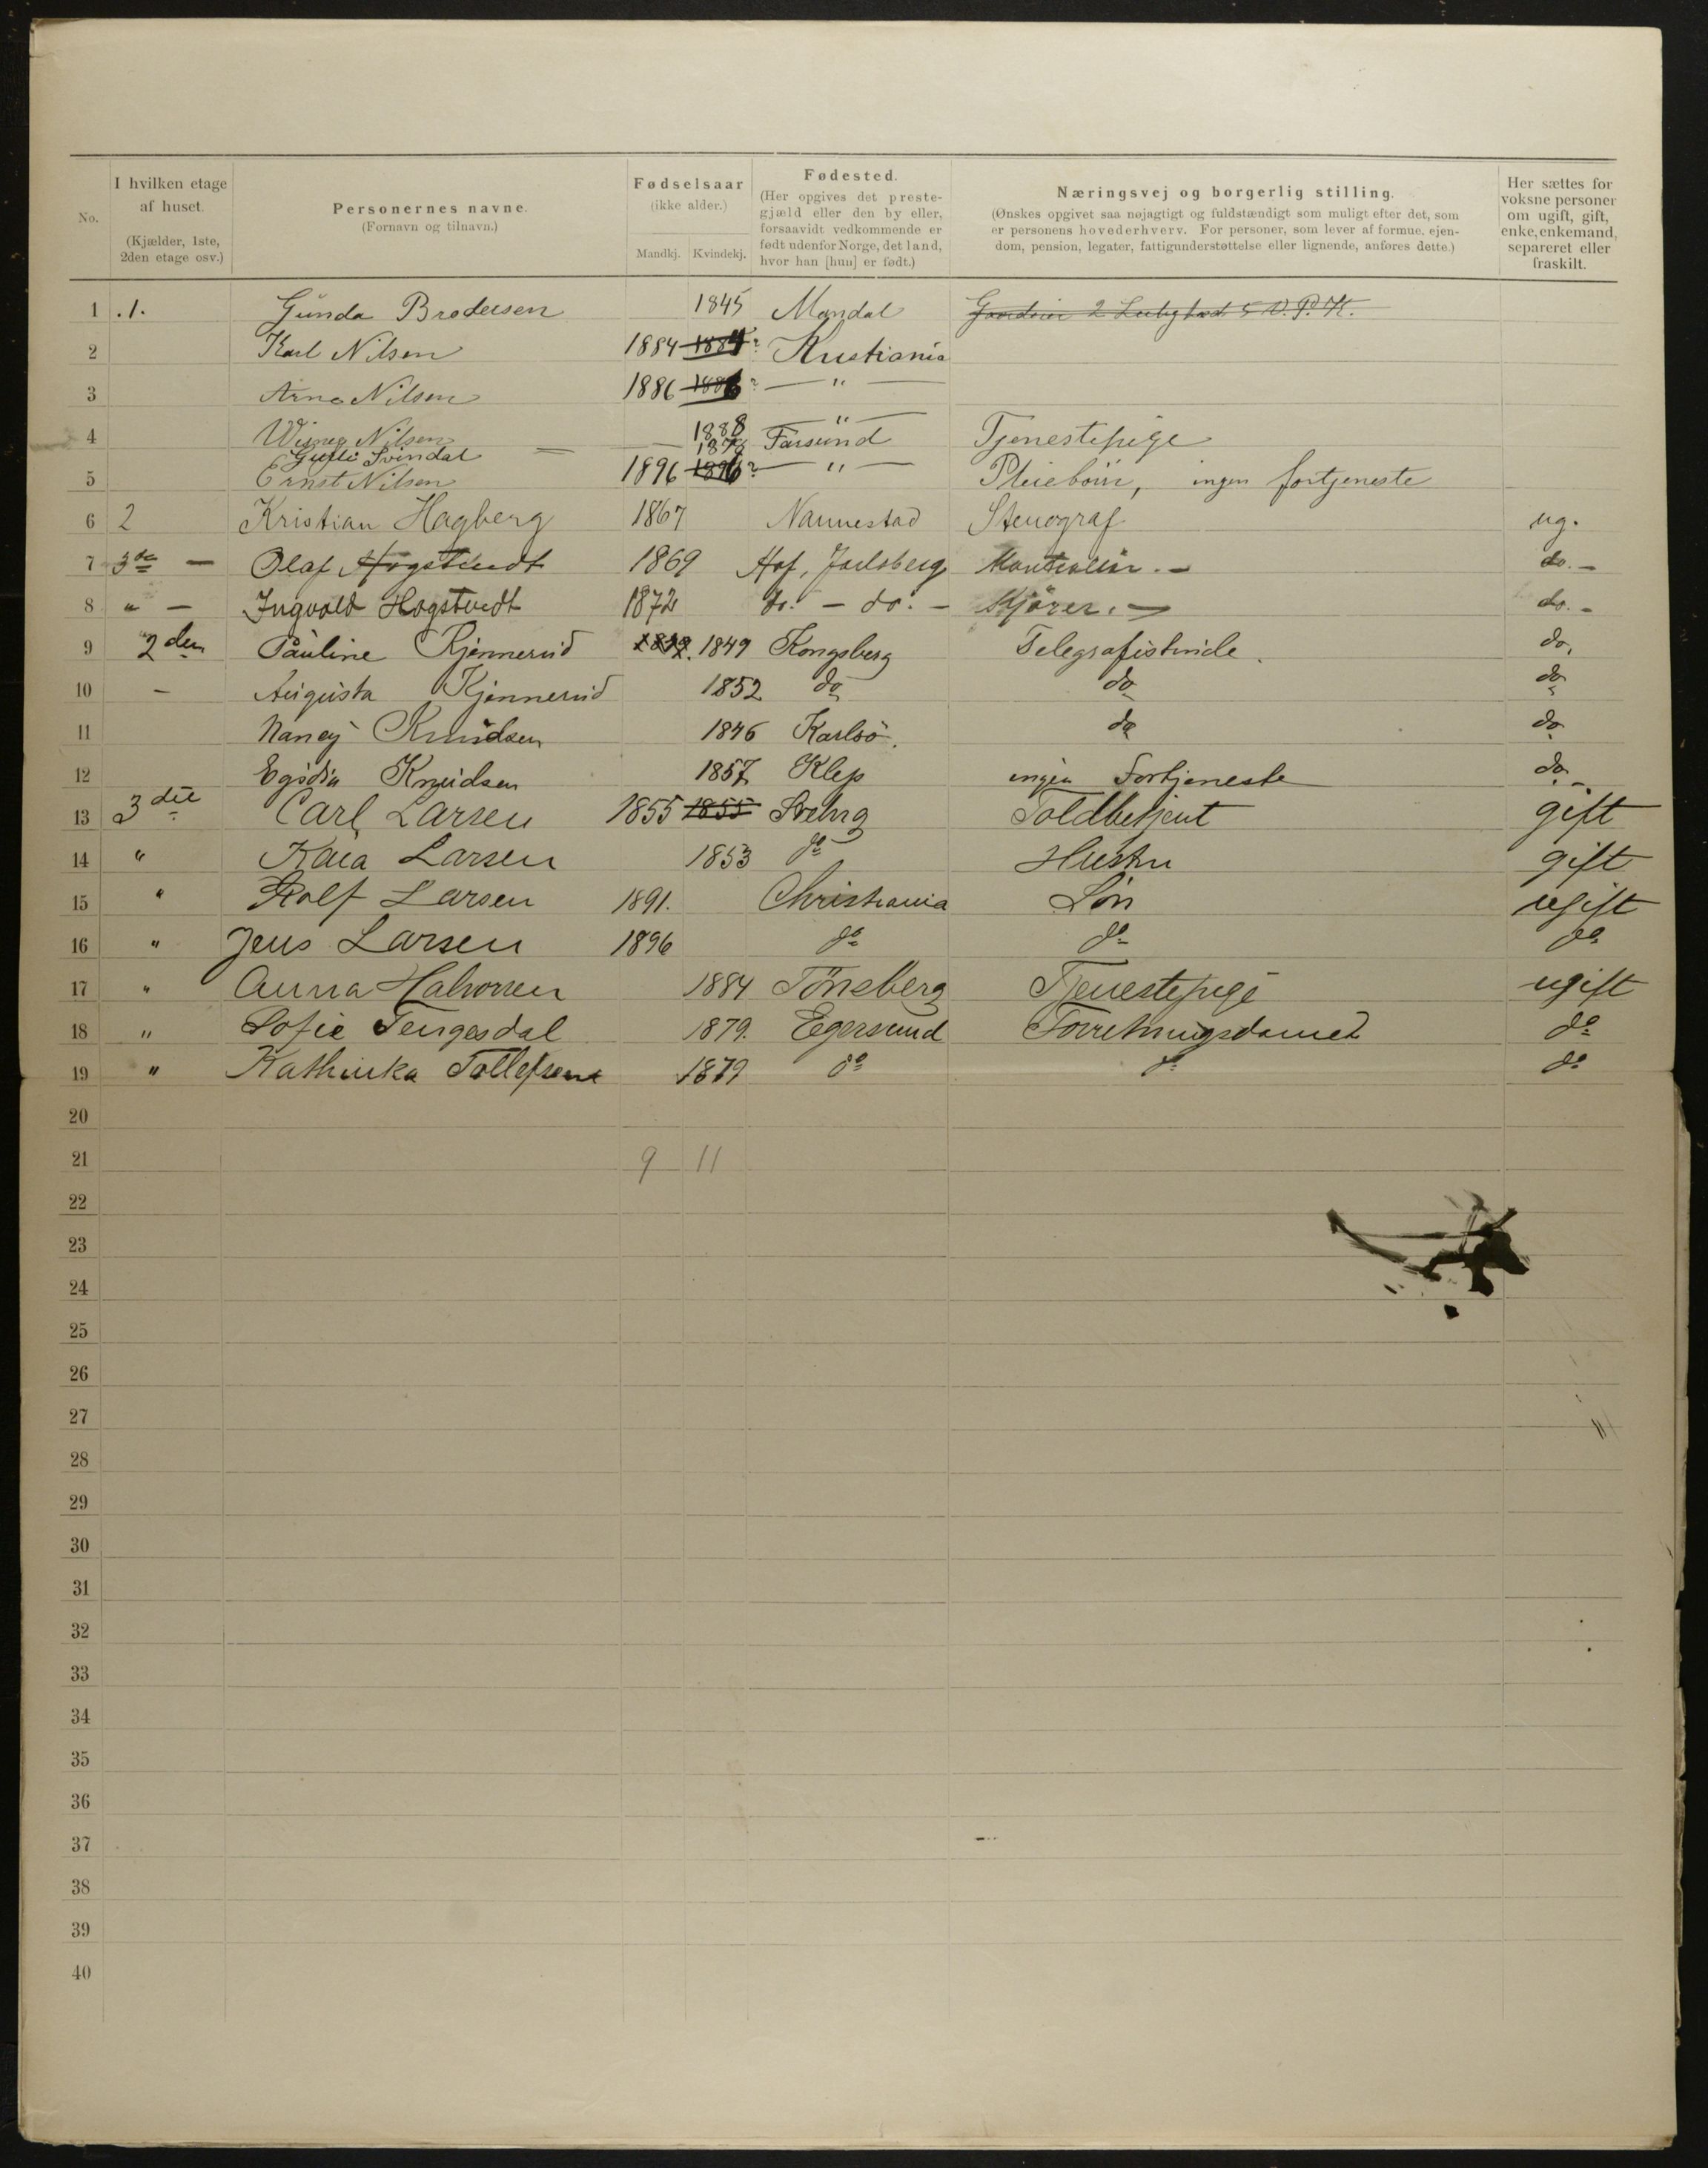 No.
I hvilken etage af huset. (Kjælder, 1ste, 2den etage osv.)
Personernes navne. (Fornavn og tilnavn.)
Fødselsaar (ikke alder.) Mandkj. Kvindekj.
Fødested. (Her opgives det prestegjæld eller den by eller, forsaavidt vedkommende er født udenfor Norge, det land, hvor han [hun] er født.)
Næringsvej og borgerlig stilling. (Ønskes opgivet saa nøjagtigt og fuldstændigt som muligt efter det, som er personens hovederhverv. For personer, som lever af formue, ejendom, pension, legater, fattigunderstøttelse eller lignende, anføres dette.)
Her sættes for voksne personer om ugift, gift, enke, enkemand, separeret eller fraskilt.
1 .1. Gunda Brodersen 1845 Mandal
2 Karl Nilsen 1884 1884? Kristiania
3 Arne Nilsen 1886 1886? — " —
4 Nilsen 1888 — " —
Svindal — 1878 Farsund Tjenestepige
5 Ernst Nilsen 1896 1896? — " — Pleiebörn, ingen fortjeneste
6 2 Kristian Hagberg 1867 Nannestad Stenograf ug.
7 3de — Olaf Hogstvedt 1869 Hof, Jarlsberg do. —
8 " — Ingvald Hogstvedt 1872 do. — do. — Kjörer. — do. —
9 2den Pauline Kjennerud 1849 Kongsberg Telegrafistinde. do.
10 — Augusta Kjennerud 1852 do do do
11 Nancy Knudsen 1846 Karlsö. do do
12 Egidia Knudsen 1857 Klep ingen Fortjeneste do. —
13 3die Carl Larsen 1855 1855 Toldbetjent gift
14 " Kaia Larsen 1853 do Hustru gift
15 " Rolf Larsen 1891. Christiania Sön ugift
16 " Jens Larsen 1896 do do do
17 " Anna Halvorsen 1884 Tönsberg Tjenestepige ugift
18 " Sofie Tengesdal 1879. Egersund Forretningsdame do
19 " Kathinka Tollefsen 1879 do do do
20
21 9 11
22
23
24
25
26
27
28
29
30
31
32
33
34
35
36
37
38
39
40